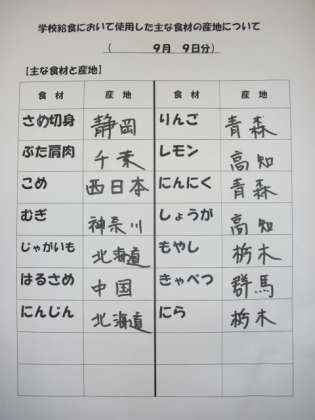 学校給食において使用した主な食材の産地について
（　　　９月　９日分）
【主な食材と産地】
食　材　産　地　食　材　産　地
さめ切身　静岡　りんご　青森
ぶた肩肉　千葉　レモン　高知
こめ　西日本　にんにく　青森
むぎ　神奈川　しょうが　高知
じゃがいも　北海道　もやし　栃木
はるさめ　中国　きゃべつ　群馬
にんじん　北海道　にら　栃木